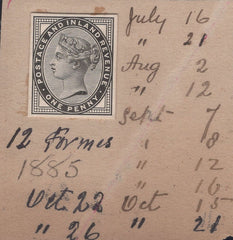 POSTAGE AND INLAND REVENUE
ONE PENNY
July 16
" 21
Aug 2
" 12
Sept 7
12 Formes " 8
1885 " 12
" 16
Oct 22 Oct 15
" 26 " 21